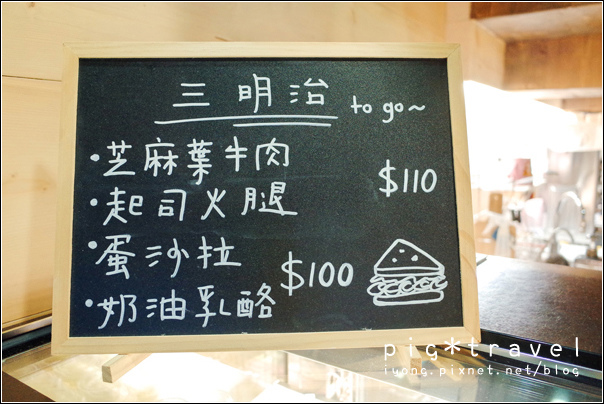 三明治 to go~
·芝麻葉牛肉
$110
·起司火腿
·蛋沙拉
$100
·奶油乳酪
pig*travel
iyong.pixnet.net/blog